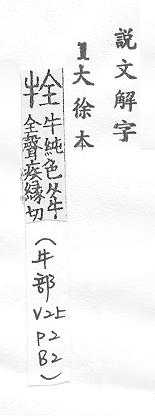 説文解字
1大徐本
牷 牛純色从牛
全聲疾緣切
(牛部
V2上
P2
B2)